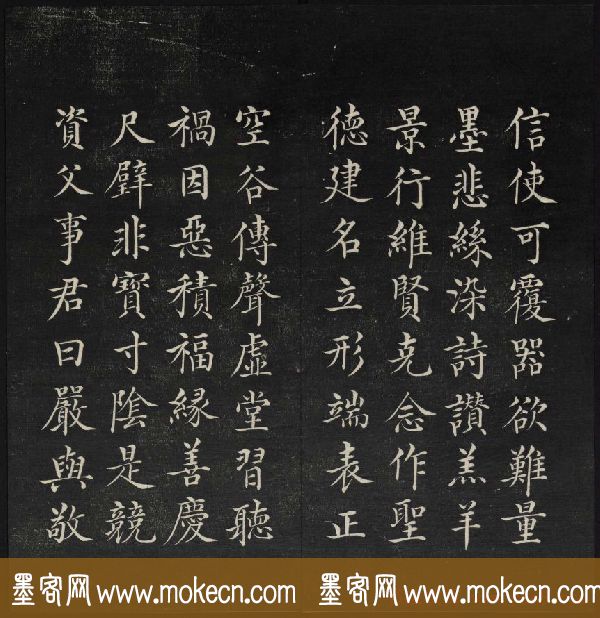 信使可覆器欲難量
墨悲絲染詩讃羔羊
景行維賢克念作聖
德建名立形端表正
空谷傳聲虛堂習聽
禍因惡積福緣善慶
尺璧非寶寸陰是競
資父事君曰嚴與敬
墨客网 www.mokecn.com 墨客网 www.mokecn.com